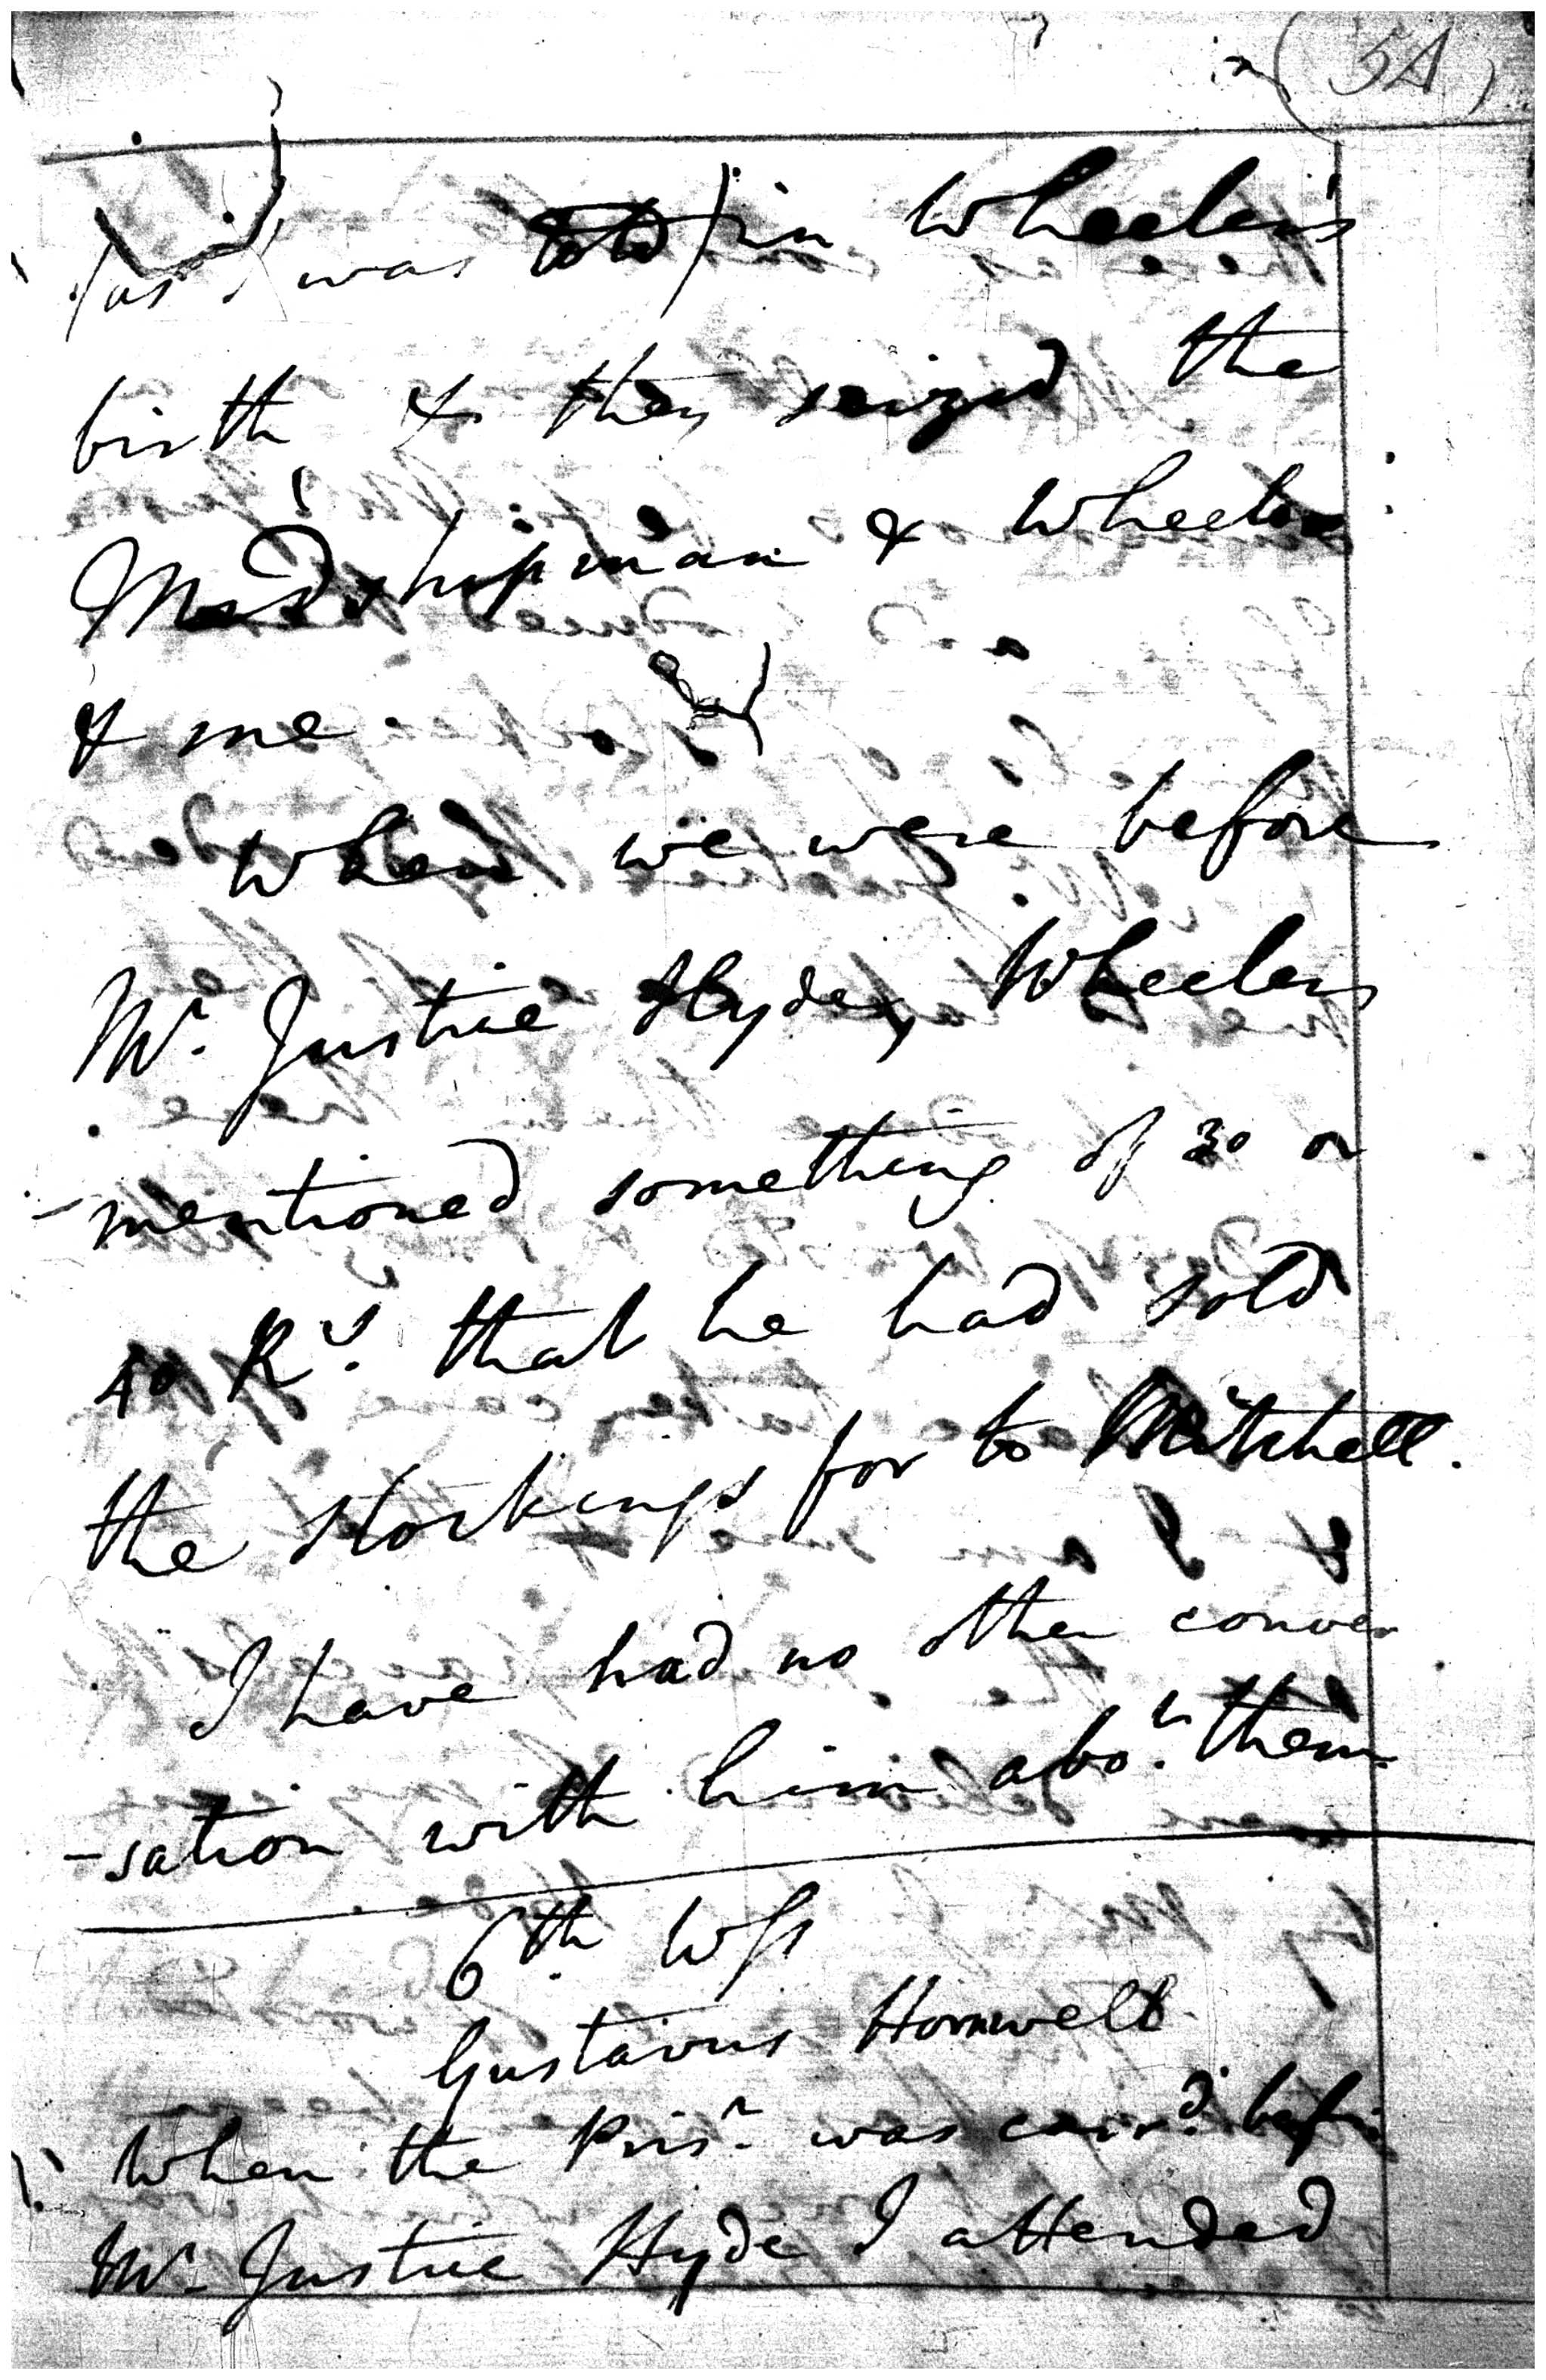 (54)
(as I was told) in Wheeler's
birth & they seized the
Midshipman & Wheeler
& me
When we were before
Mr. Justice Hyde, Wheeler
mentioned something of 30 or
40 Rs. that he had sold
the stockings for to Mitchell.
I have had no other conver
-sation with him abot. them
6th. Wss
Gustavus Hornwelt
When the Prisr. was carrd. before
Mr. Justice Hyde I attended